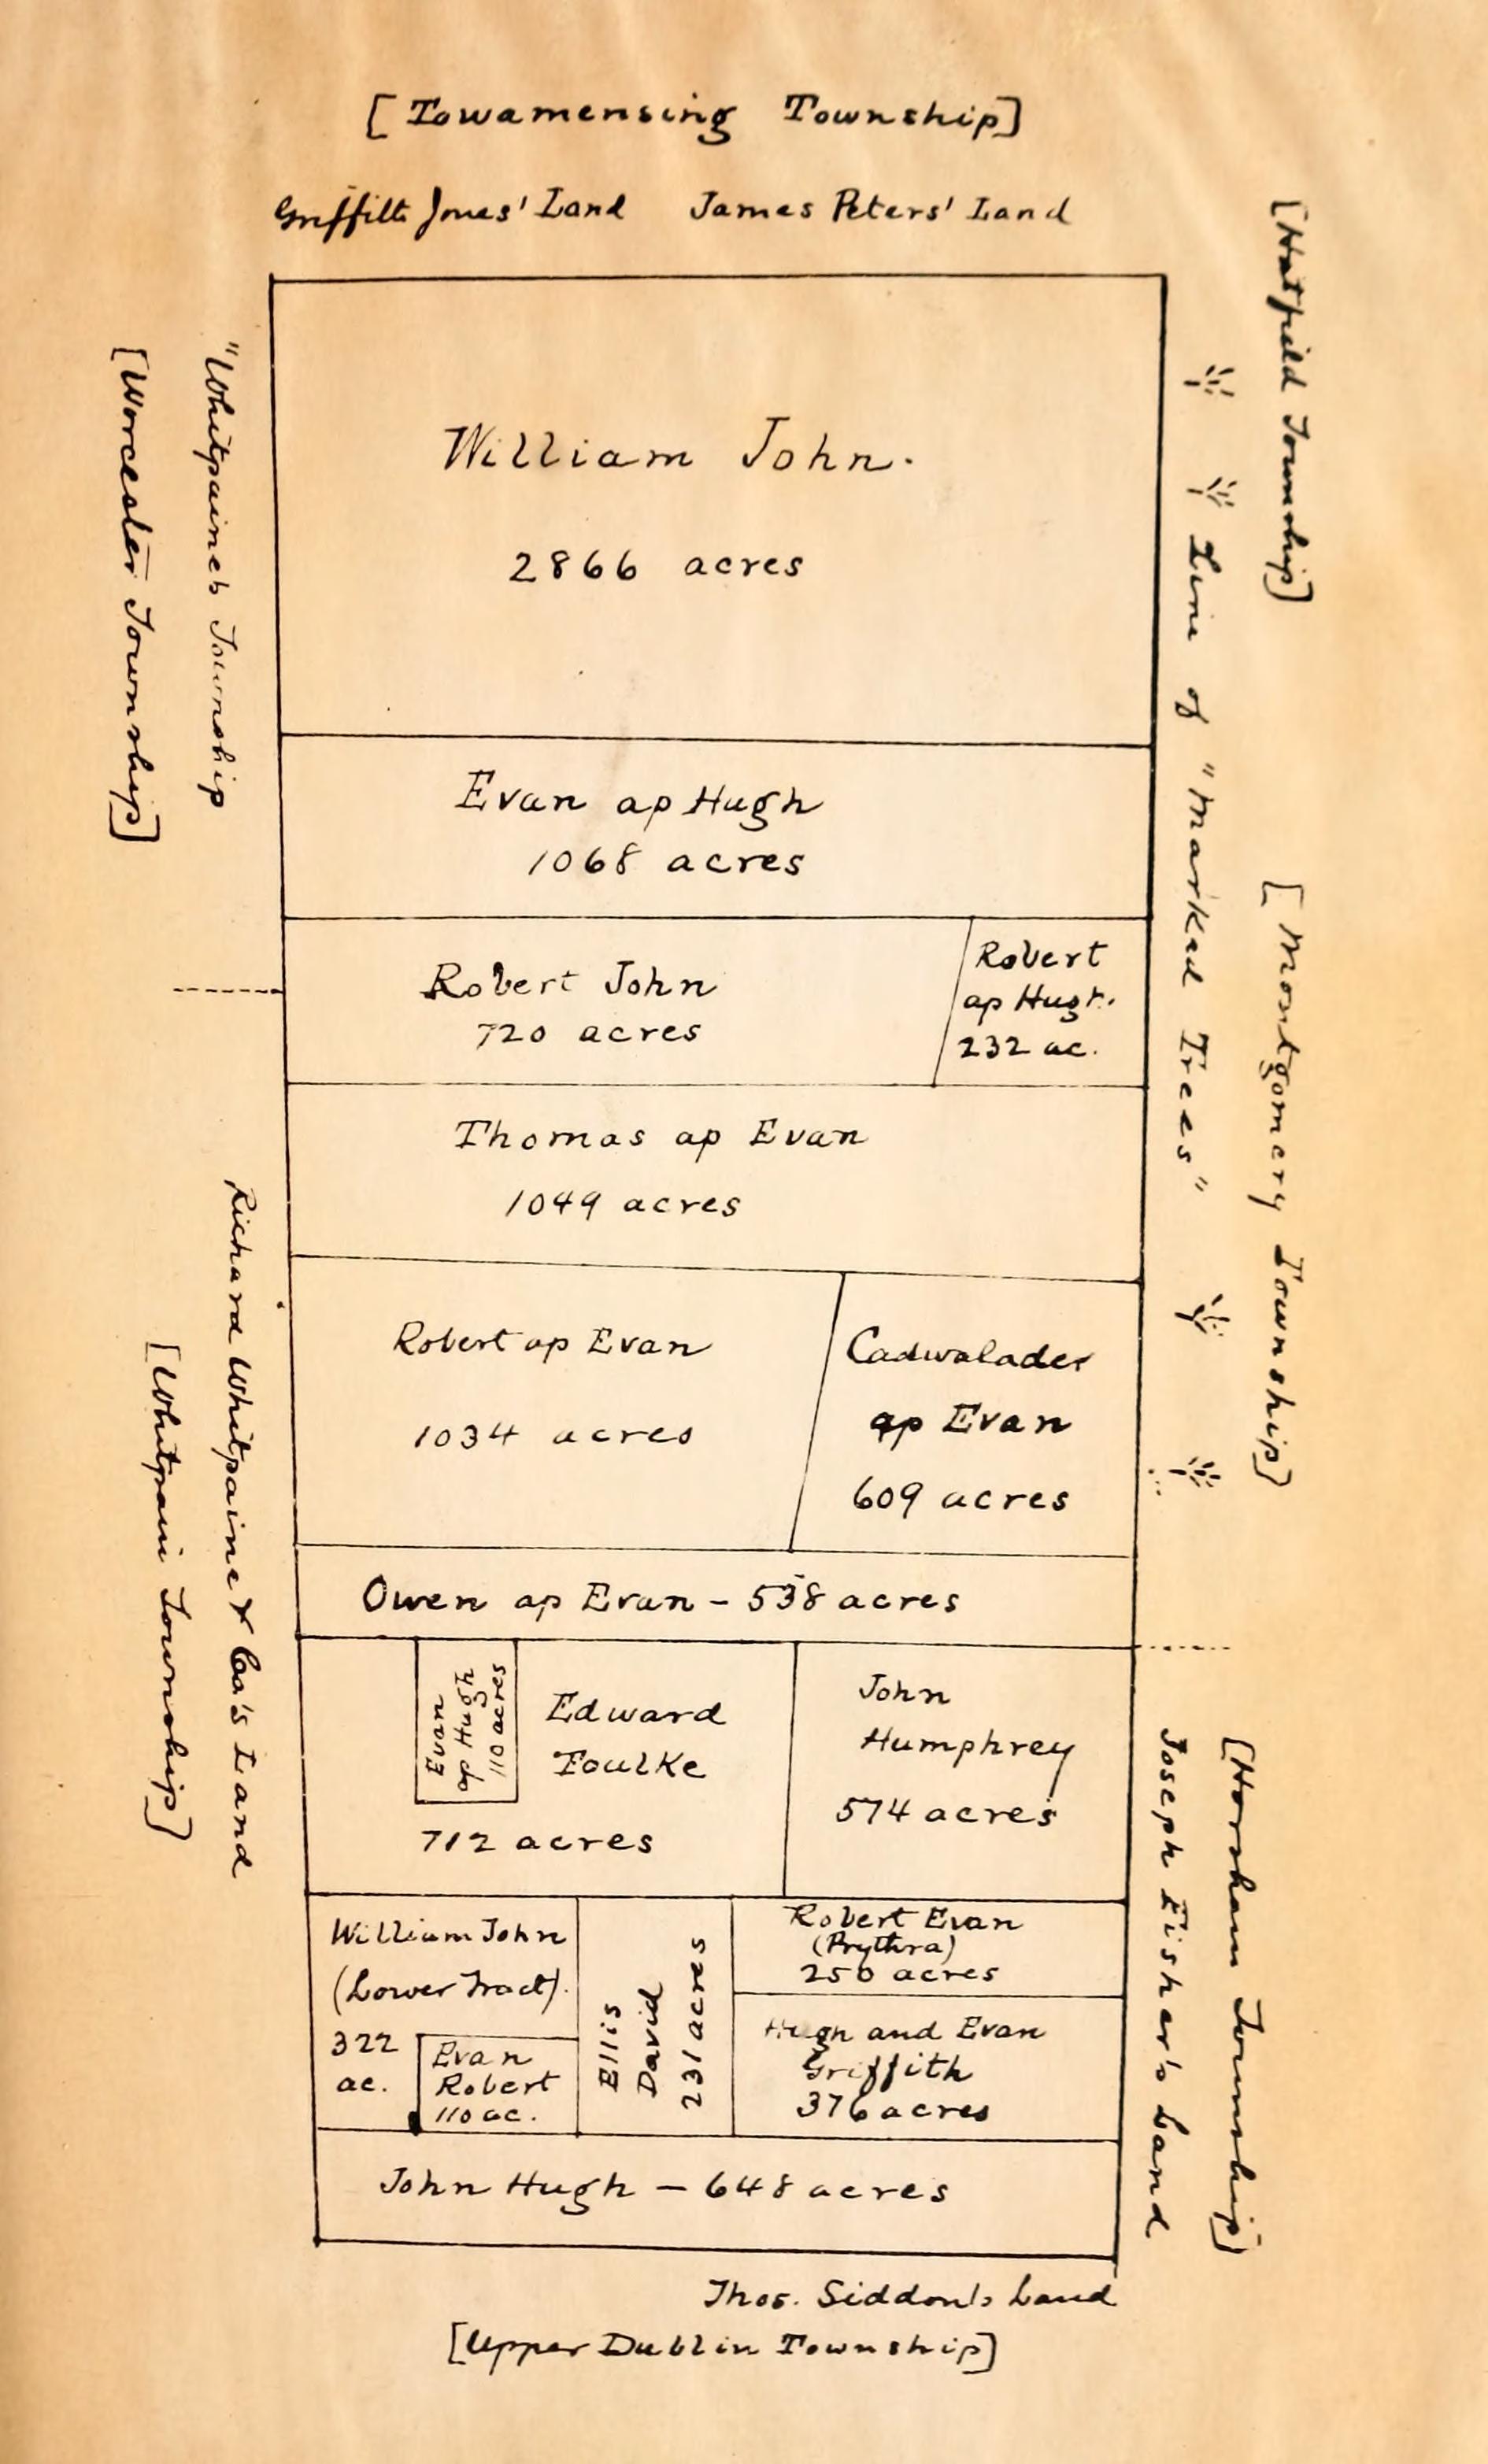 [Towamensing Township]
Griffith Jones' Land James Peters' Land
[Hatfield Township]
"Whitpaine's Township
[Worcester Township]
William John.
2866 acres
Line of "Marked Trees"
Evan ap Hugh
1068 acres
Robert John
720 acres
Robert
ap Hugh.
232 ac.
[Montgomery Township]
Thomas ap Evan
1049 acres
Richard Whitpaine & Co's Land
[Whitpain Township]
Robert ap Evan
1034 acres
Cadwalader
ap Evan
609 acres
Owen ap Evan - 538 acres
Evan
ap Hugh
110 acres
Edward
Foulke
712 acres
John
Humphrey
574 acres
[Horsham Township]
Joseph Fisher's Land
William John
(Lower Tract).
322
ac.
Evan
Robert
110 ac.
Ellis
David
231 acres
Robert Evan
(Prythra)
250 acres
Hugh and Evan
Griffith
376 acres
John Hugh - 648 acres
Thos. Siddon's Land
[Upper Dublin Township]